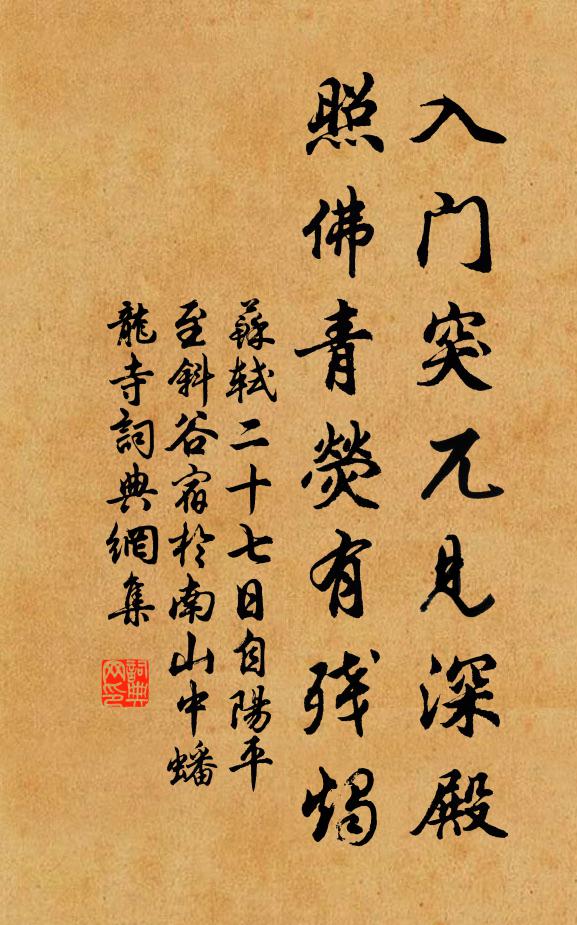 入門突兀見深殿
照佛青熒有殘燭
蘇軾二十七日自陽平
至斜谷宿於南山中蟠
龍寺詞典網集
詞典網印